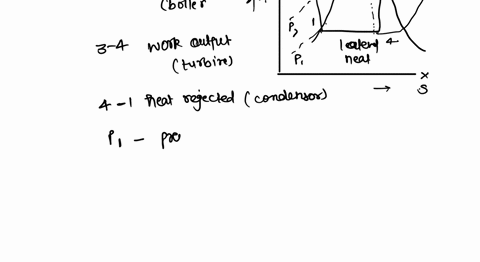 (boiler
3-4 work output
(turbine)
4-1 heat rejected (condensor)
P₁ - pre
P₂
1
P₁
latent
heat
4
→ x
S